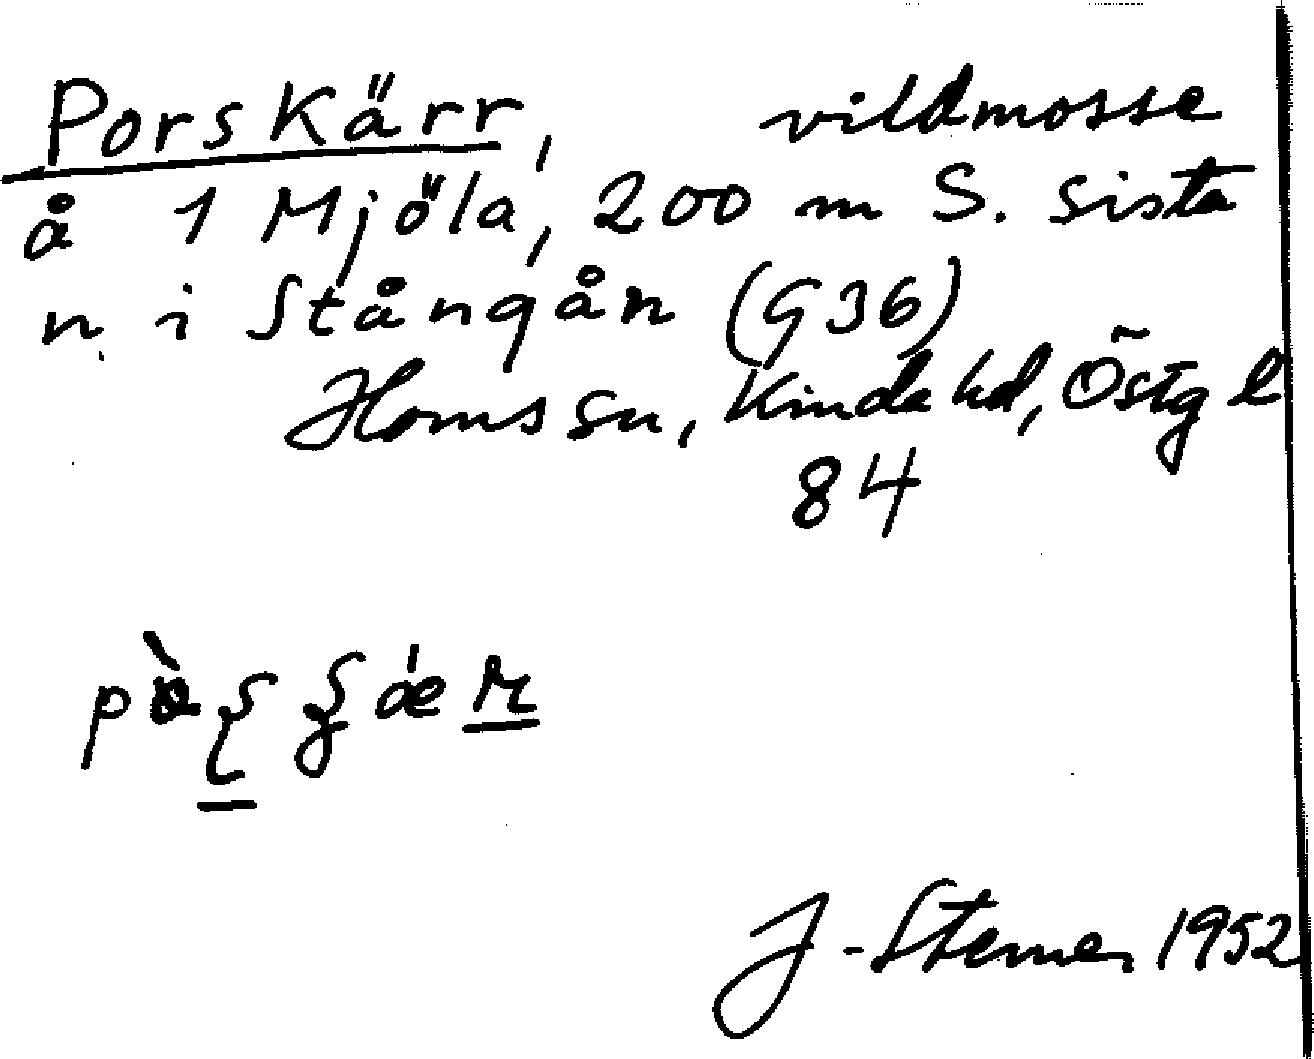 Porskärr, vildmosse
å 1 Mjöla, 200 m S. sista
n i Stångån (G36)
Horns sn, Kinda hd, Östg l
84
J. Sterner 1952